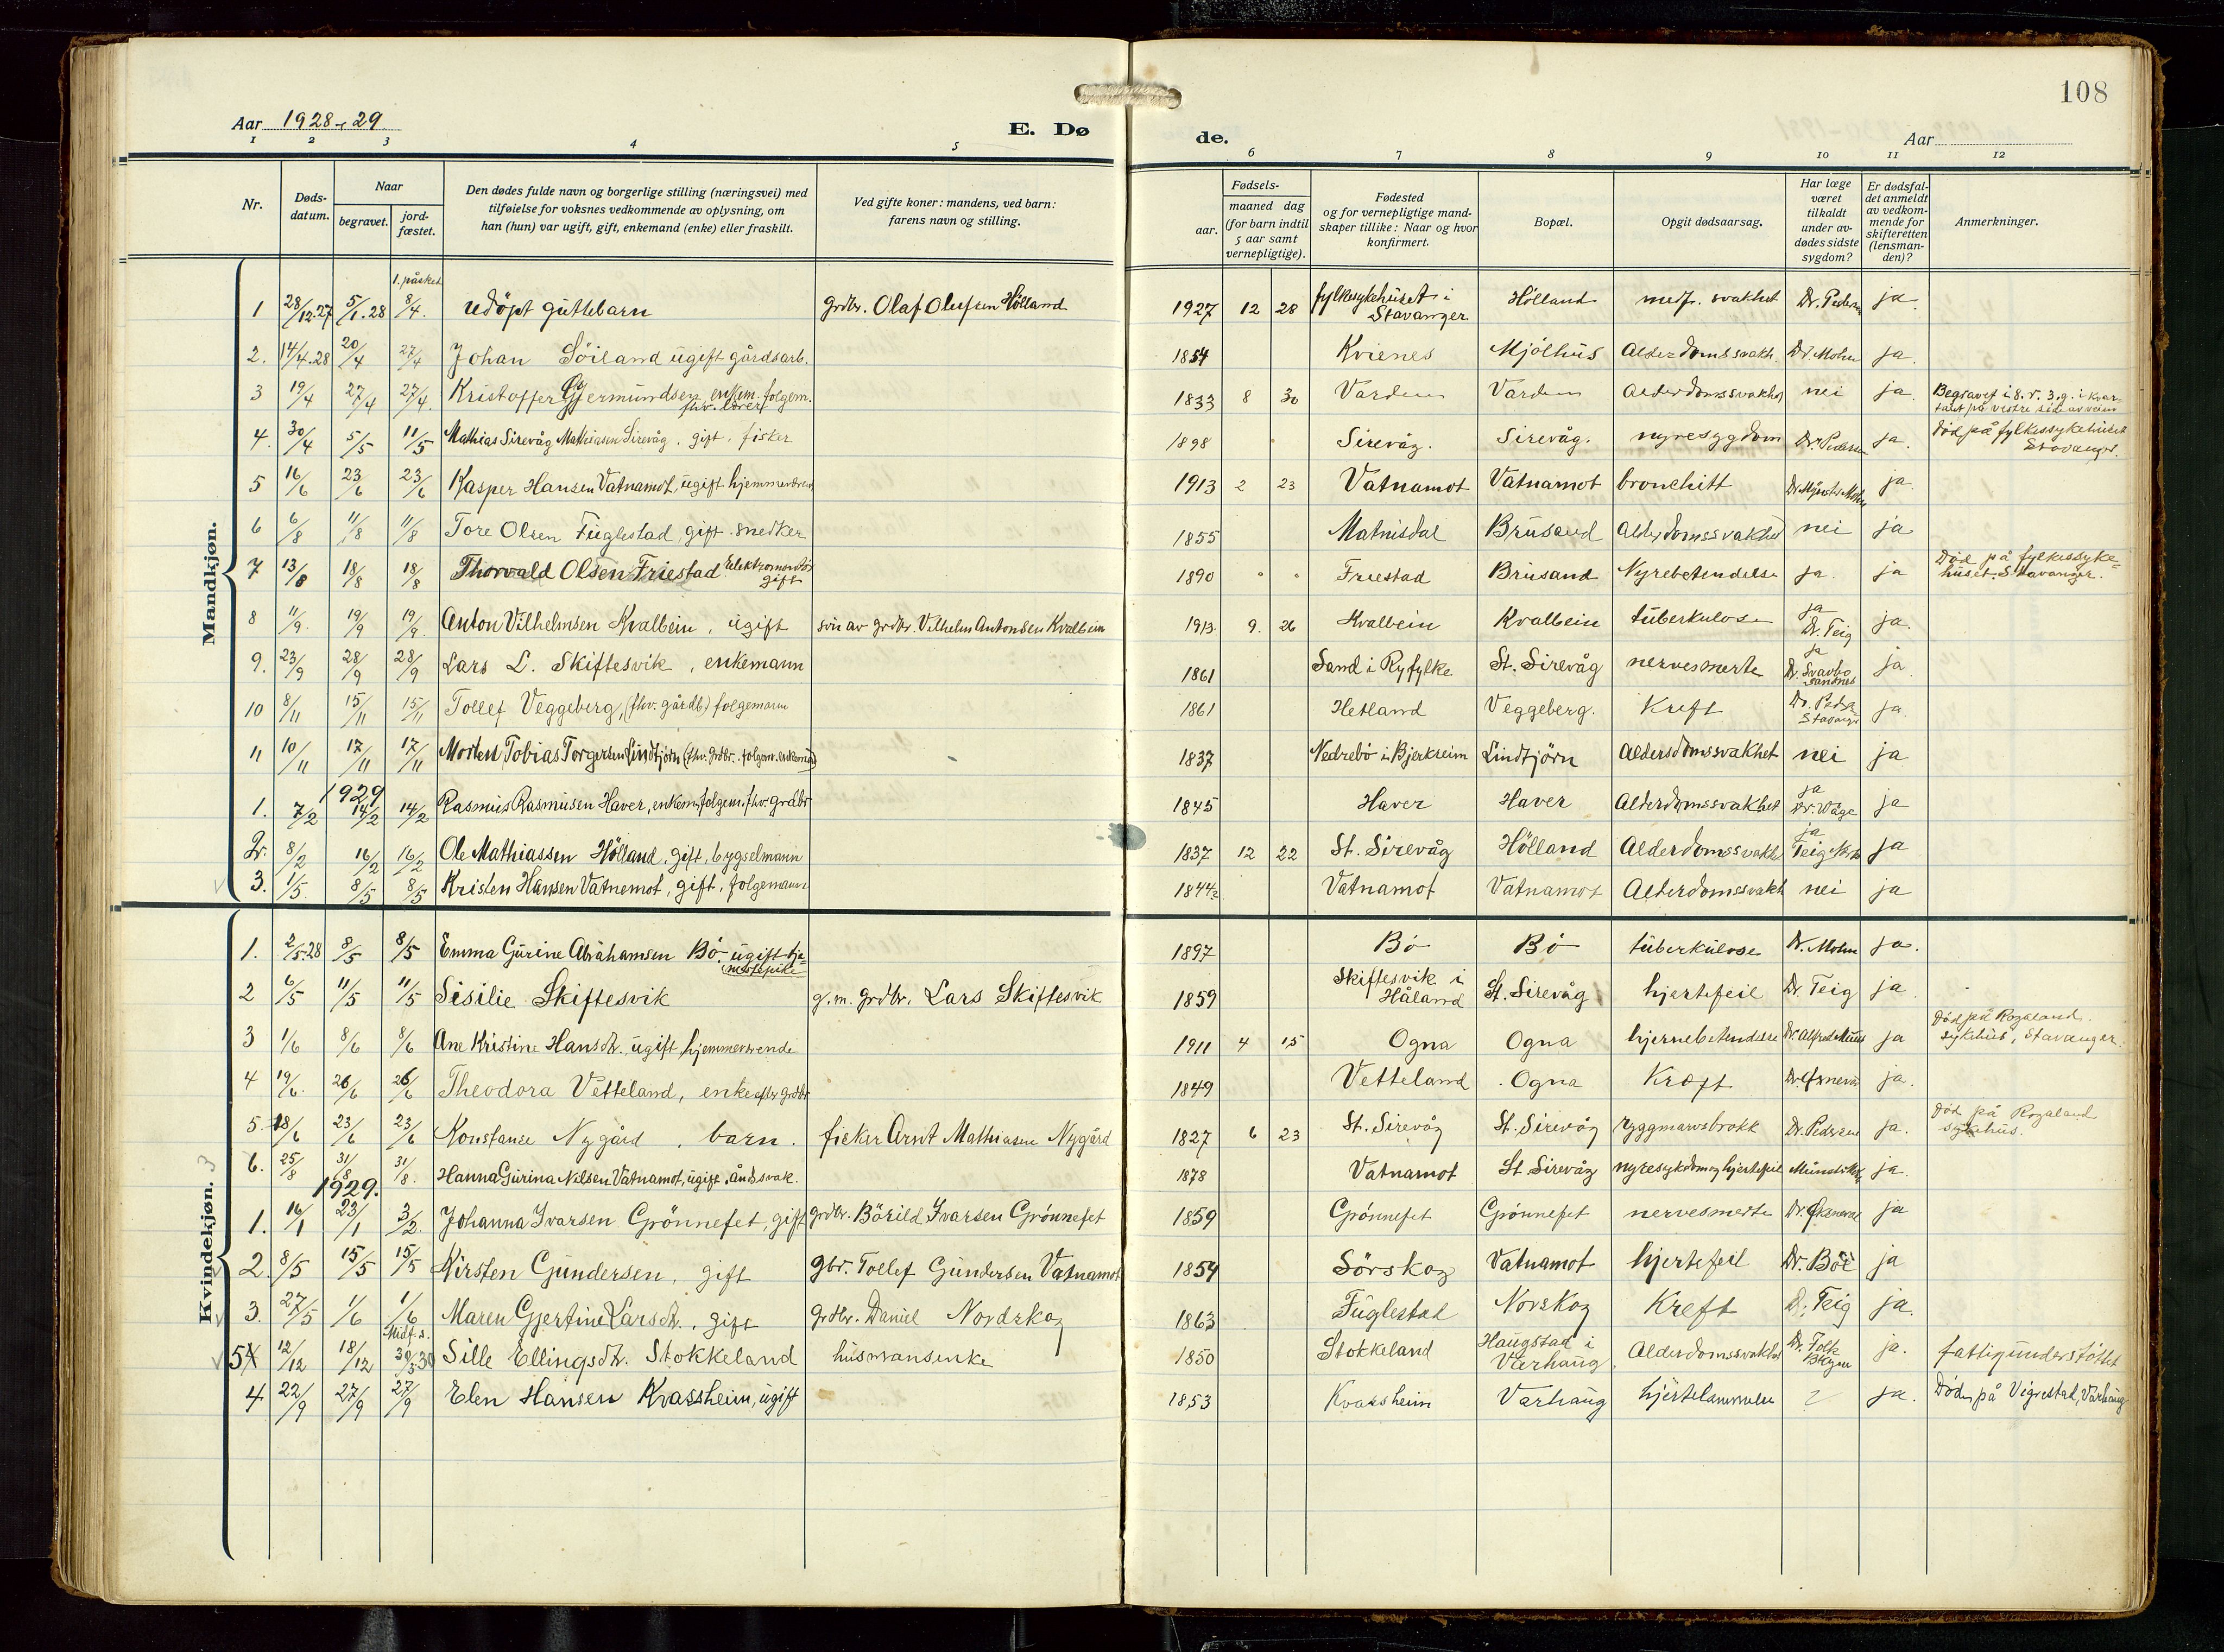 108
Aar 1928-29
E. Dø de.
Aar
1 2 3 4 5 6 7 8 9 10 11 12
Nr.
Døds-datum.
Naar
begravet.
jord-fæstet.
Den dødes fulde navn og borgerlige stilling (næringsvei) med
tilføielse for voksnes vedkommende av oplysning, om
han (hun) var ugift, gift, enkemand (enke) eller fraskilt.
Ved gifte koner: mandens, ved barn:
farens navn og stilling.
Fødsels-
aar.
maaned dag
(for barn indtil
5 aar samt
vernepligtige).
Fødested
og for vernepligtige mand-
skaper tillike: Naar og hvor
konfirmert.
Bopæl.
Opgit dødsaarsag.
Har læge
været
tilkaldt
under av-
dødes sidste
sygdom?
Er dødsfal-
det anmeldt
av vedkom-
mende for
skifteretten
(lensman-
den)?
Anmerkninger.
Mandkjøn.
1. påsked.
1 28/12-27 5/1.28 8/4. udöpt guttebarn grdbr. Olaf Olufsen Hölland 1927 12 28 fylkesykehuset i Stavanger Hölland medf. svakhet Dr. Peders ja
2. 14/4.28 20/4 27/4 Johan Söiland ugift gårdsarb. 1854 Kvienes Mjölhus Alderdomssvakh. Dr. Mohn ja.
3 19/4 27/4 27/4. Kristoffer Gjermundsen enkem. folgem. fhv. lærer 1833 8 30 Varden Varden Alderdomssvakhet nei ja. Begravet i 8. r. 3. g. i kvartalet på vestre side av veien
4. 30/4 5/5 11/5 Mathias Sirevåg Mathiasen Sirevåg. gift. fisker 1898 Sirevåg. Sirevåg. nyresygdom Dr. Pedersen ja. Död på fylkessykehuset Stavanger.
5 16/6 23/6 23/6 Kasper Hansen Vatnamot, ugift hjemmeværende 1913 2 23 Vatnamot Vatnamot bronchitt ja.
6 6/8 11/8 11/8 Tore Olsen Fuglestad, gift. snedker 1855 Matnisdal Brusand Alderdomssvakhet nei ja
7 13/8 18/8 18/8 Thorvald Olsen Friestad Elektromontör gift 1890 Friestad Brusand Nyrebetendelse ja. ja Död på fylkessykehuset. Stavanger.
8 11/9. 19/9 19/9. Anton Vilhelmsen Kvalbein, ugift sön av grdbr. Vilhelm Antonsen Kvalbein 1913 9. 26 Kvalbein Kvalbein tuberkulose ja Dr. Teig ja.
9. 23/9 28/9 28/9 Lars L. Skiftesvik, enkemann 1861 Sand i Ryfylke St. Sirevåg nervesmerte ja Dr. Svadbo Sandnes ja
10 8/11 15/11 15/11 Tollef Veggeberg, (fhv. gårdb) folgemann 1861 Hetland Veggeberg. Kreft Dr. Peders Stavanger ja.
11 10/11 17/11 17/11 Morten Tobias Torgersen Lindtjörn (fhv. grdbr. folgem. enkemand) 1837 Nedrebö i Bjerkreim Lindtjörn Aldersdomssvakhet nei ja
1929
1. 7/2 14/2 14/2 Rasmus Rasmusen Haver, enkem. folgem. fhv. grdbr 1845 Haver Haver Alderdomssvakhet ja Dr. Våge ja
2. 8/2 16/2 16/2 Ole Mathiassen Hölland. gift, bygselmann 1837 12 22 St. Sirevåg Hölland Alderdomssvakhet ja Teig ja
3. 1/5. 8/5 8/5 Kristen Hansen Vatnemot, gift, folgemann 1844 Vatnamot Vatnamot Alderdomssvakh nei ja
Kvindekjøn.
1. 2/5-28 8/5 8/5 Emma Gurine Abrahamsen Bö. ugift tjenestepike 1897 Bö Bö tuberkulose Dr. Mohn ja.
2 6/5 11/5 11/5 Sisilie Skiftesvik g. m. grdbr. Lars Skiftesvik 1859 Skiftesvik i Håland St. Sirevåg hjertefeil Dr. Teig ja
3 1/6 8/6 8/6 Ane Kristine Hansdtr. ugift, hjemmeværende 1911 4 15 Ogna Ogna hjernebetendelse Dr. Alfred Muus ja Död på Rogaland sykehus, Stavanger.
4 19/6. 26/6 26/6 Theodora Vetteland, enke efter grdbr 1849 Vetteland. Ogna Kræft ja.
5. 18/6 23/6 23/6 Konstanse Nygård, barn. fisker Arnt Mathiasen Nygård 1827 6 23 St. Sirevåg St. Sirevåg ryggmarvsbrokk Dr. Pedersen ja. Död på Rogaland sykehus.
6. 25/8 31/8 31/8. Hanna Gurina Nilsen Vatnamot, ugift. åndsvak. 1878 Vatnamot St. Sirevåg nyresykdom og hjertefeil ja.
1929.
1. 16/1 23/1 3/2. Johanna Ivarsen Grönnefet, gift grdbr. Börild Ivarsen Grönnefet 1859 Grönnefet Grönnefet nervesmerte ja
2. 8/5 15/5 15/5 Kirsten Gundersen, gift gbr. Tollef Gundersen Vatnamot 1854 Sörskog Vatnamot hjertefeil Dr. Böe ja
3. 27/5 1/6 1/6 Maren Gjertine Larsdtr., gift grdbr. Daniel Nordskog 1863 Fuglestad Norskog Kreft D. Teig ja.
Midf. s.
5 12/12 18/12 30/5 30 Sille Ellingsdtr. Stokkeland husmansenke 1850 Stokkeland Haugstad i Varhaug Alderdomssvakhet Dr. Folk Bryne ja. fattigunderstöttet
4 22/9 27/9 27/9 Elen Hansen Kvassheim, ugift 1853 Kvassheim Varhaug hjertelammelse ? ja. Döde på Vigrestad, Varhaug